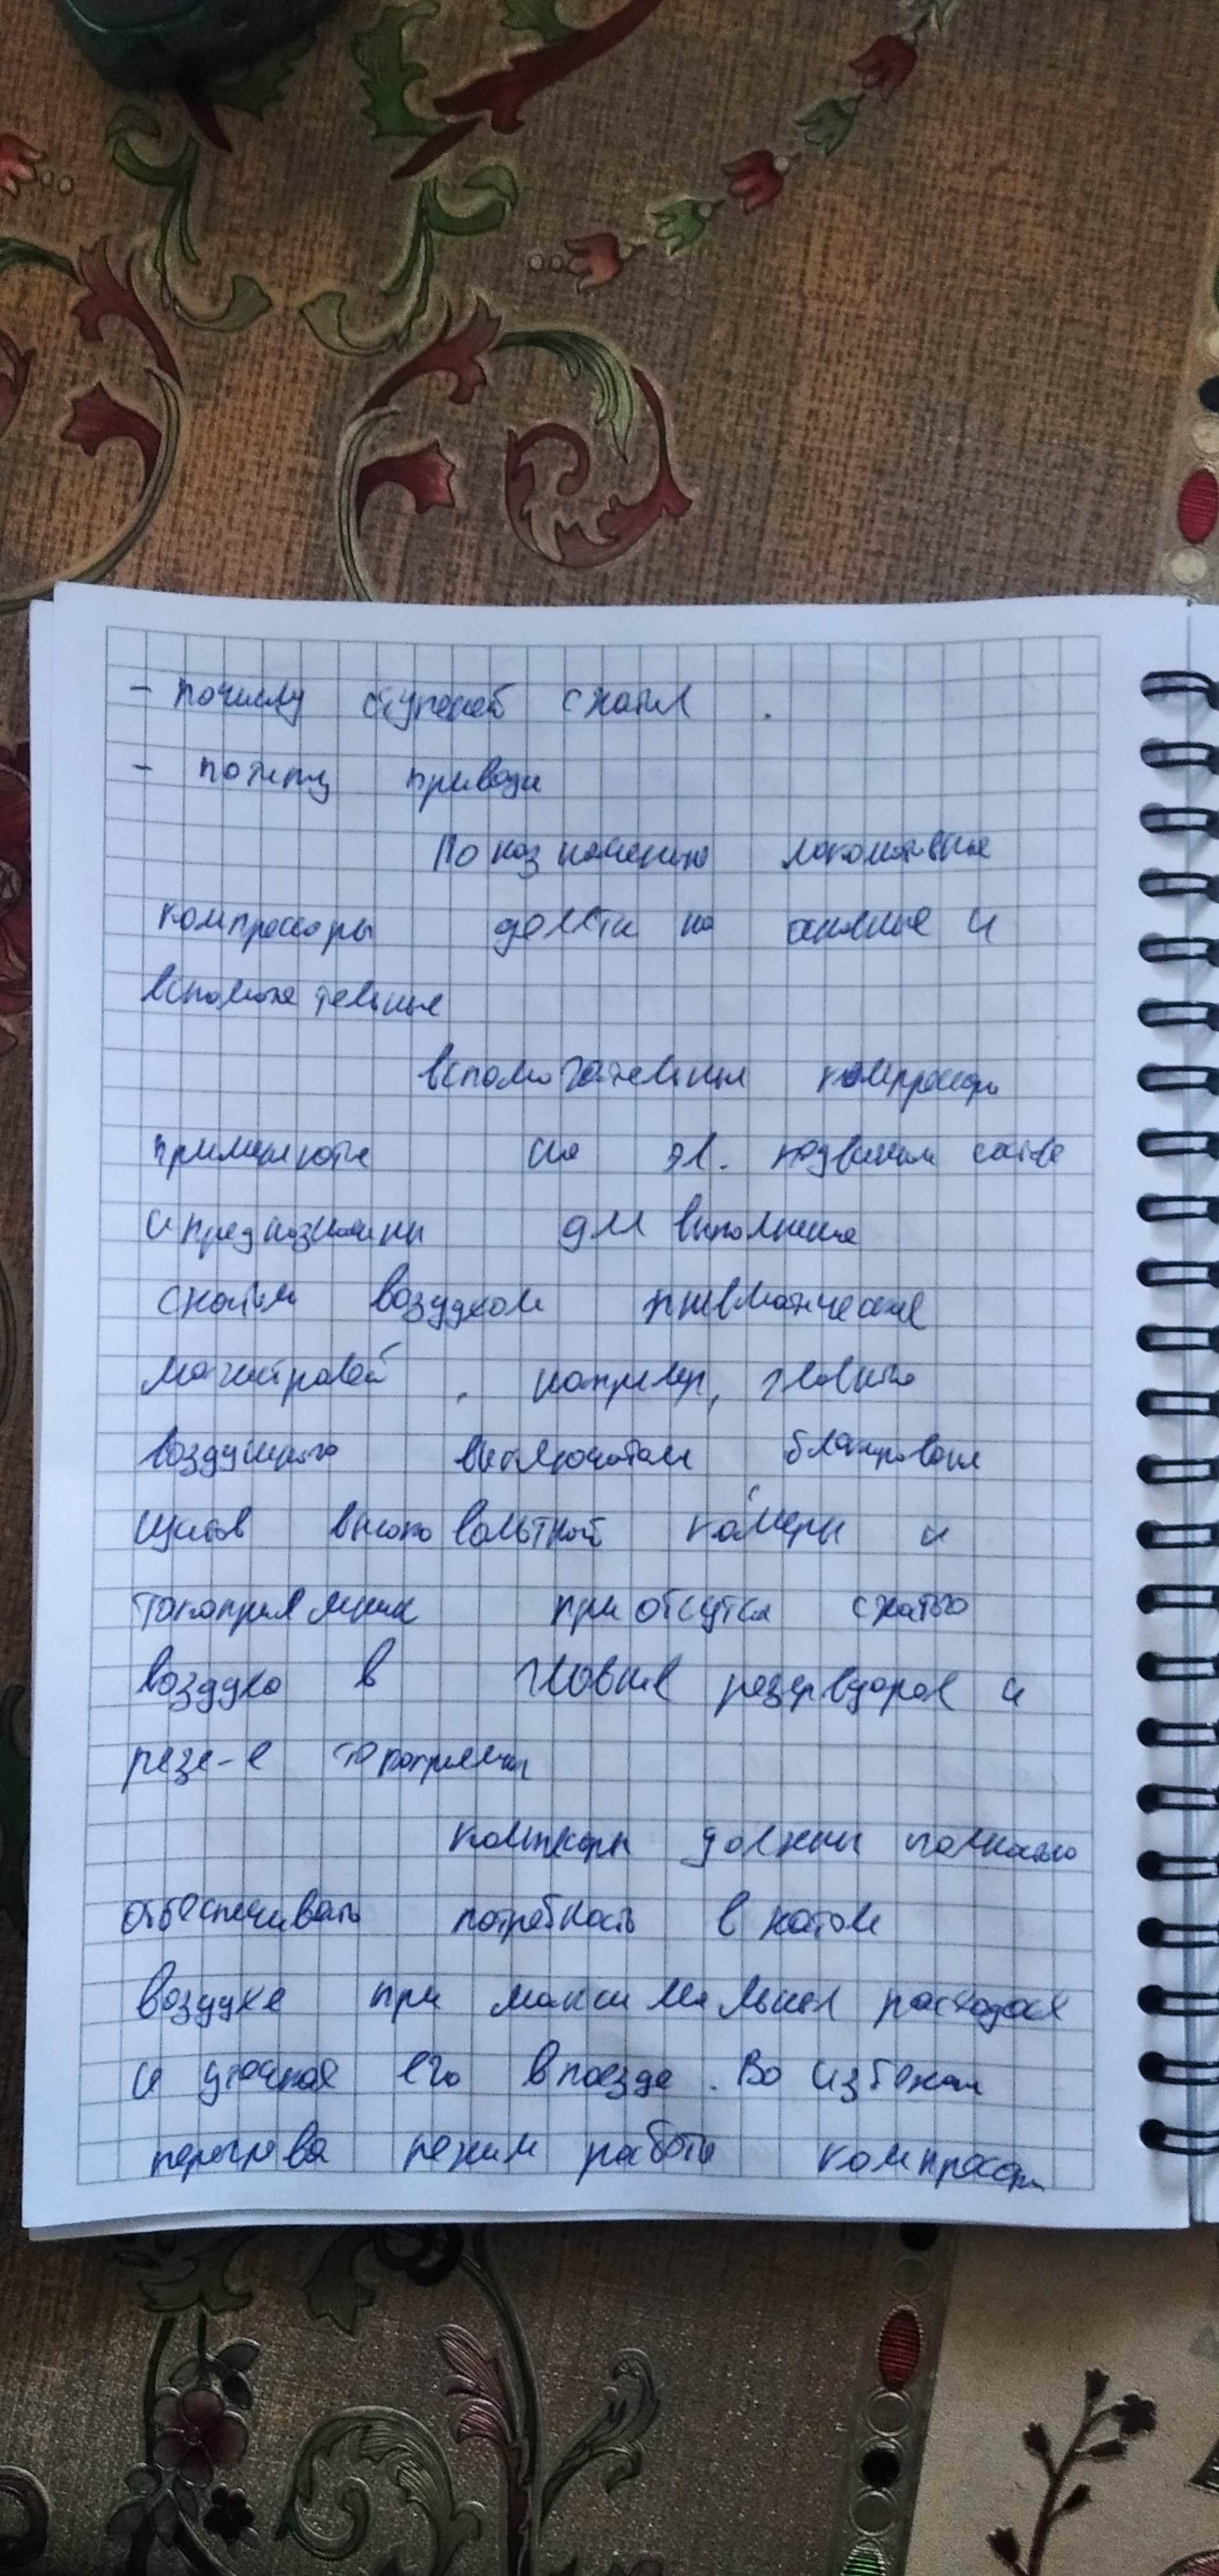 - почислу ступеней сжатия.
- потипу привода
По назначению локомотивные
компрессоры делятся на основные и
вспомогательные
вспомогательные компрессоры
применяются на эл. подвижном составе
и предназначены для выполнения
сжатым воздухом пневматических
магистралей, например, главного
воздушного выключателя блокирования
щитов высоковольтной камеры и
токоприемник при отсутств сжатого
воздуха в главных резервуарах и
резе-е токоприемника
компрессоры должны полностью
обеспечивать потребность в жатом
воздухе при максимальных расходах
и утечках его в поезде. Во избежании
перегрева режим работы компрессора